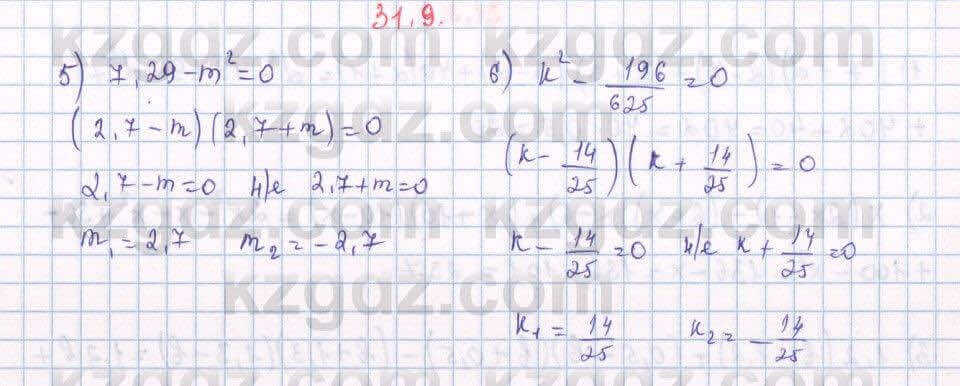 31.9.
5) 7,29-m²=0
(2,7-m)(2,7+m)=0
2,7-m=0 н/е 2,7+m=0
m₁=2,7 m₂=-2,7
6) k²-196/625=0
(k-14/25)(k+14/25)=0
k-14/25=0 н/е k+14/25=0
k₁=14/25 k₂=-14/25
kzgdz.com
kzgdz.com
kzgdz.com